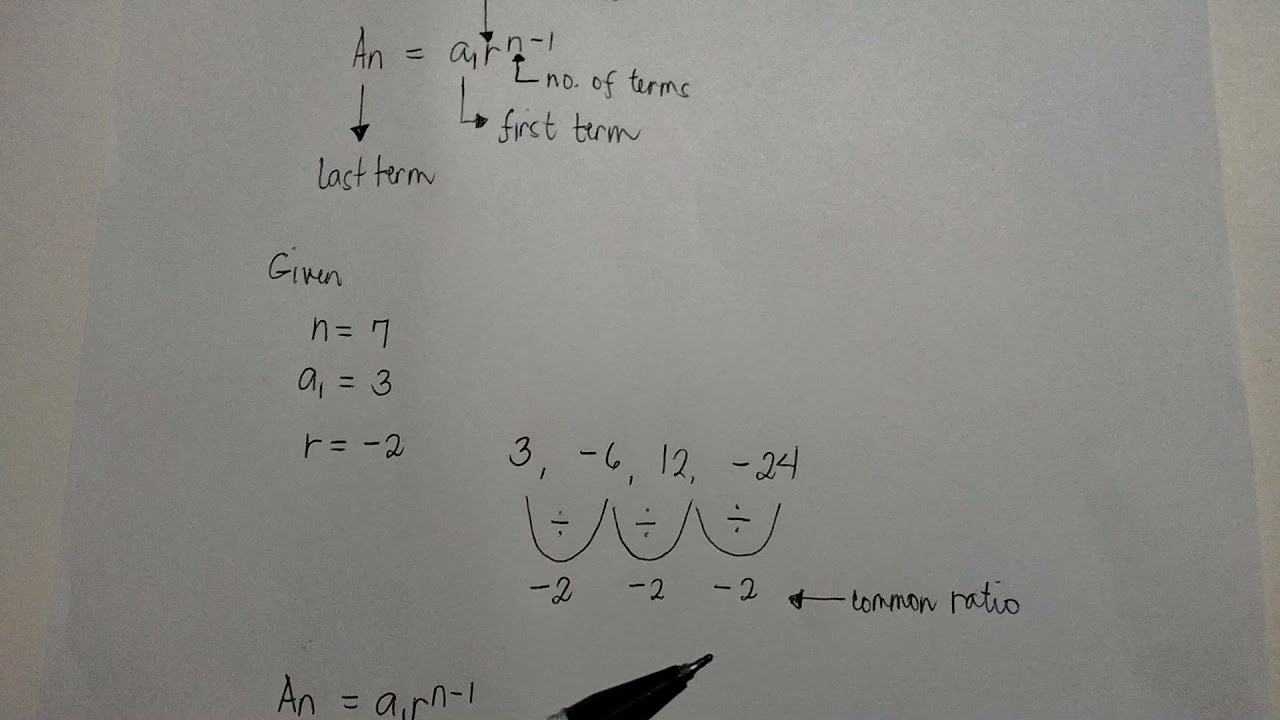 An = a₁rⁿ⁻¹
no. of terms
first term
last term
Given
n = 7
a₁ = 3
r = -2
3, -6, 12, -24
÷ ÷ ÷
-2 -2 -2 ← common ratio
An = a₁rⁿ⁻¹